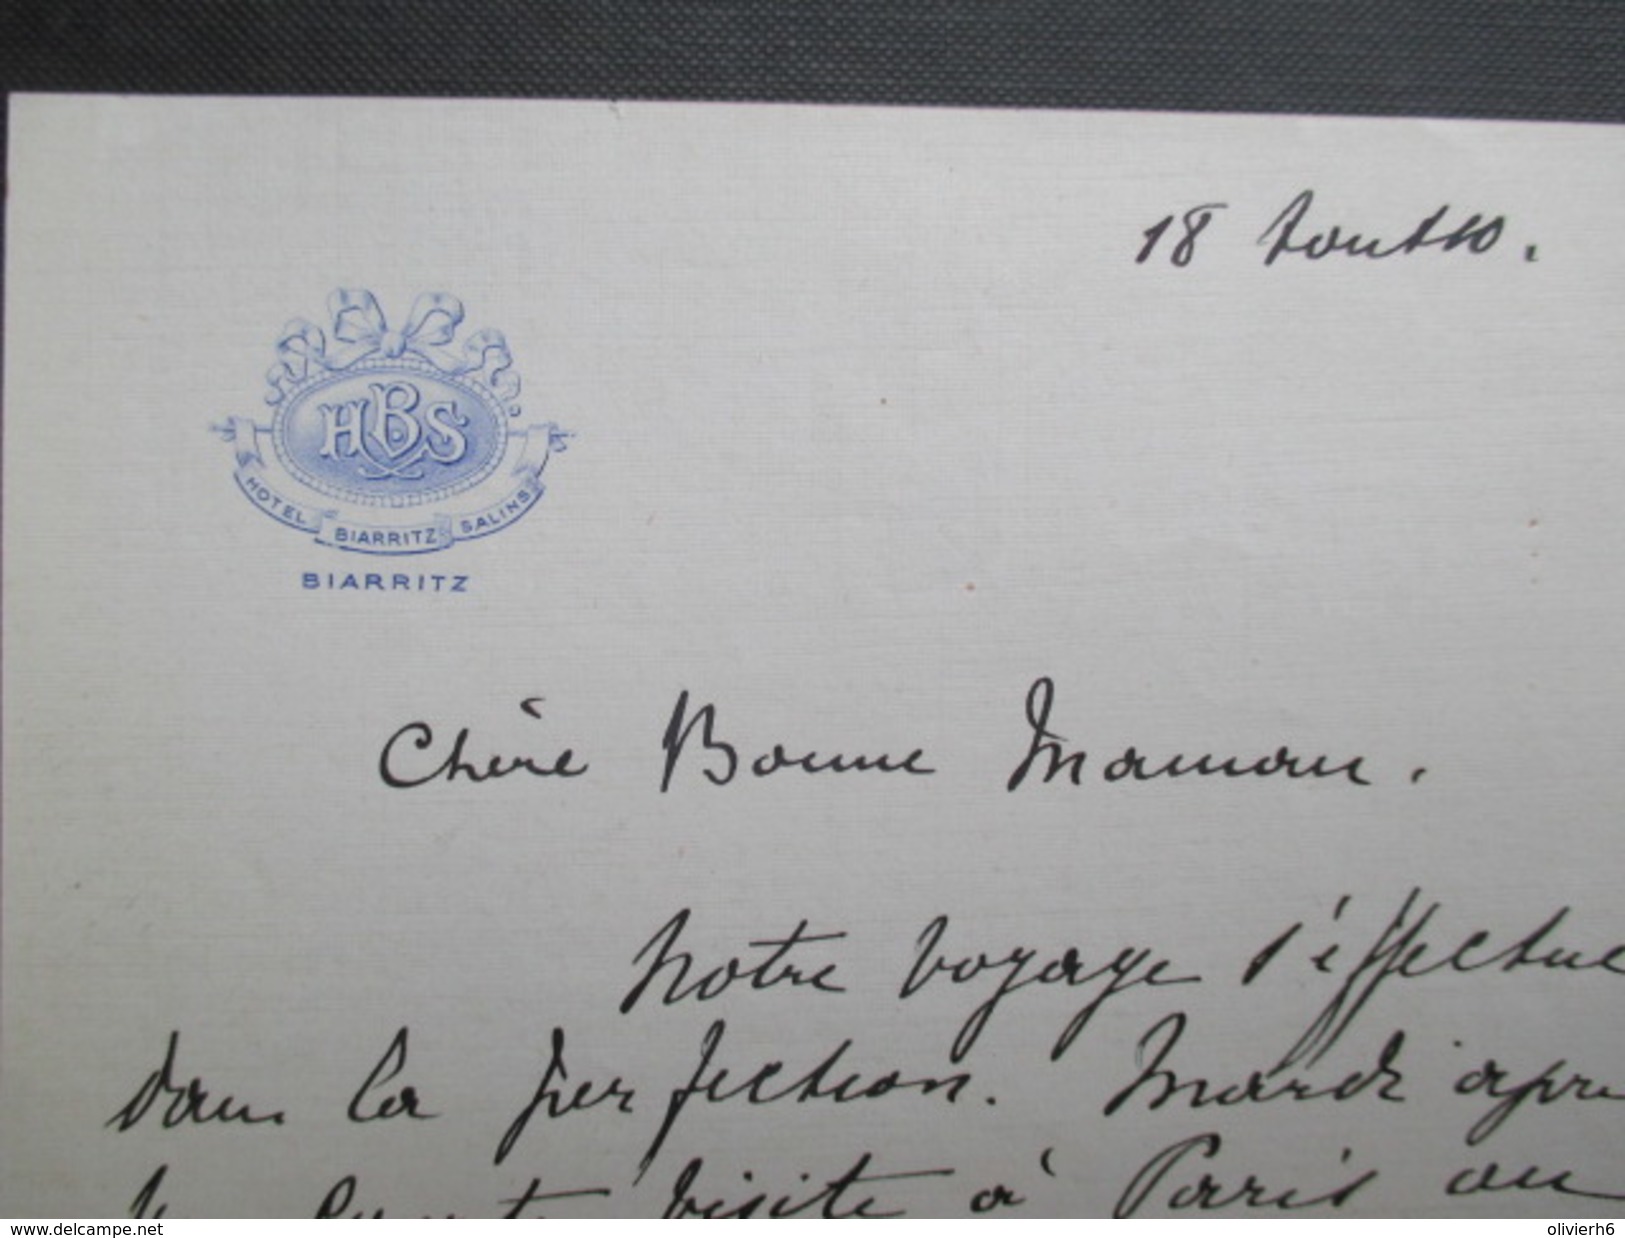 18
HBS
HOTEL BIARRITZ SALINS
BIARRITZ
Chère Bonne Maman.
Notre voyage s'éffectue
dans la perfection. Mardi apre
visite à Paris au
www.delcampe.net olivierh6